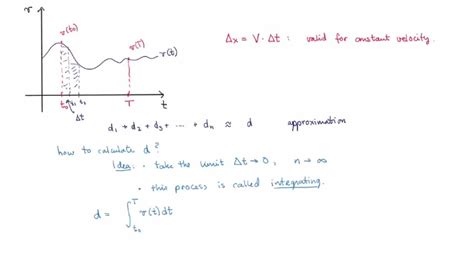 v
v(t₀)
v(T)
v(t)
t₀ t₁ t₂
T
t
Δt
Δx = V · Δt : valid for constant velocity.
d₁ + d₂ + d₃ + ... + dₙ ≈ d approximation
how to calculate d?
Idea: · take the limit Δt → 0, n → ∞
· this process is called integrating.
d = ∫ₜ₀ᵀ v(t) dt